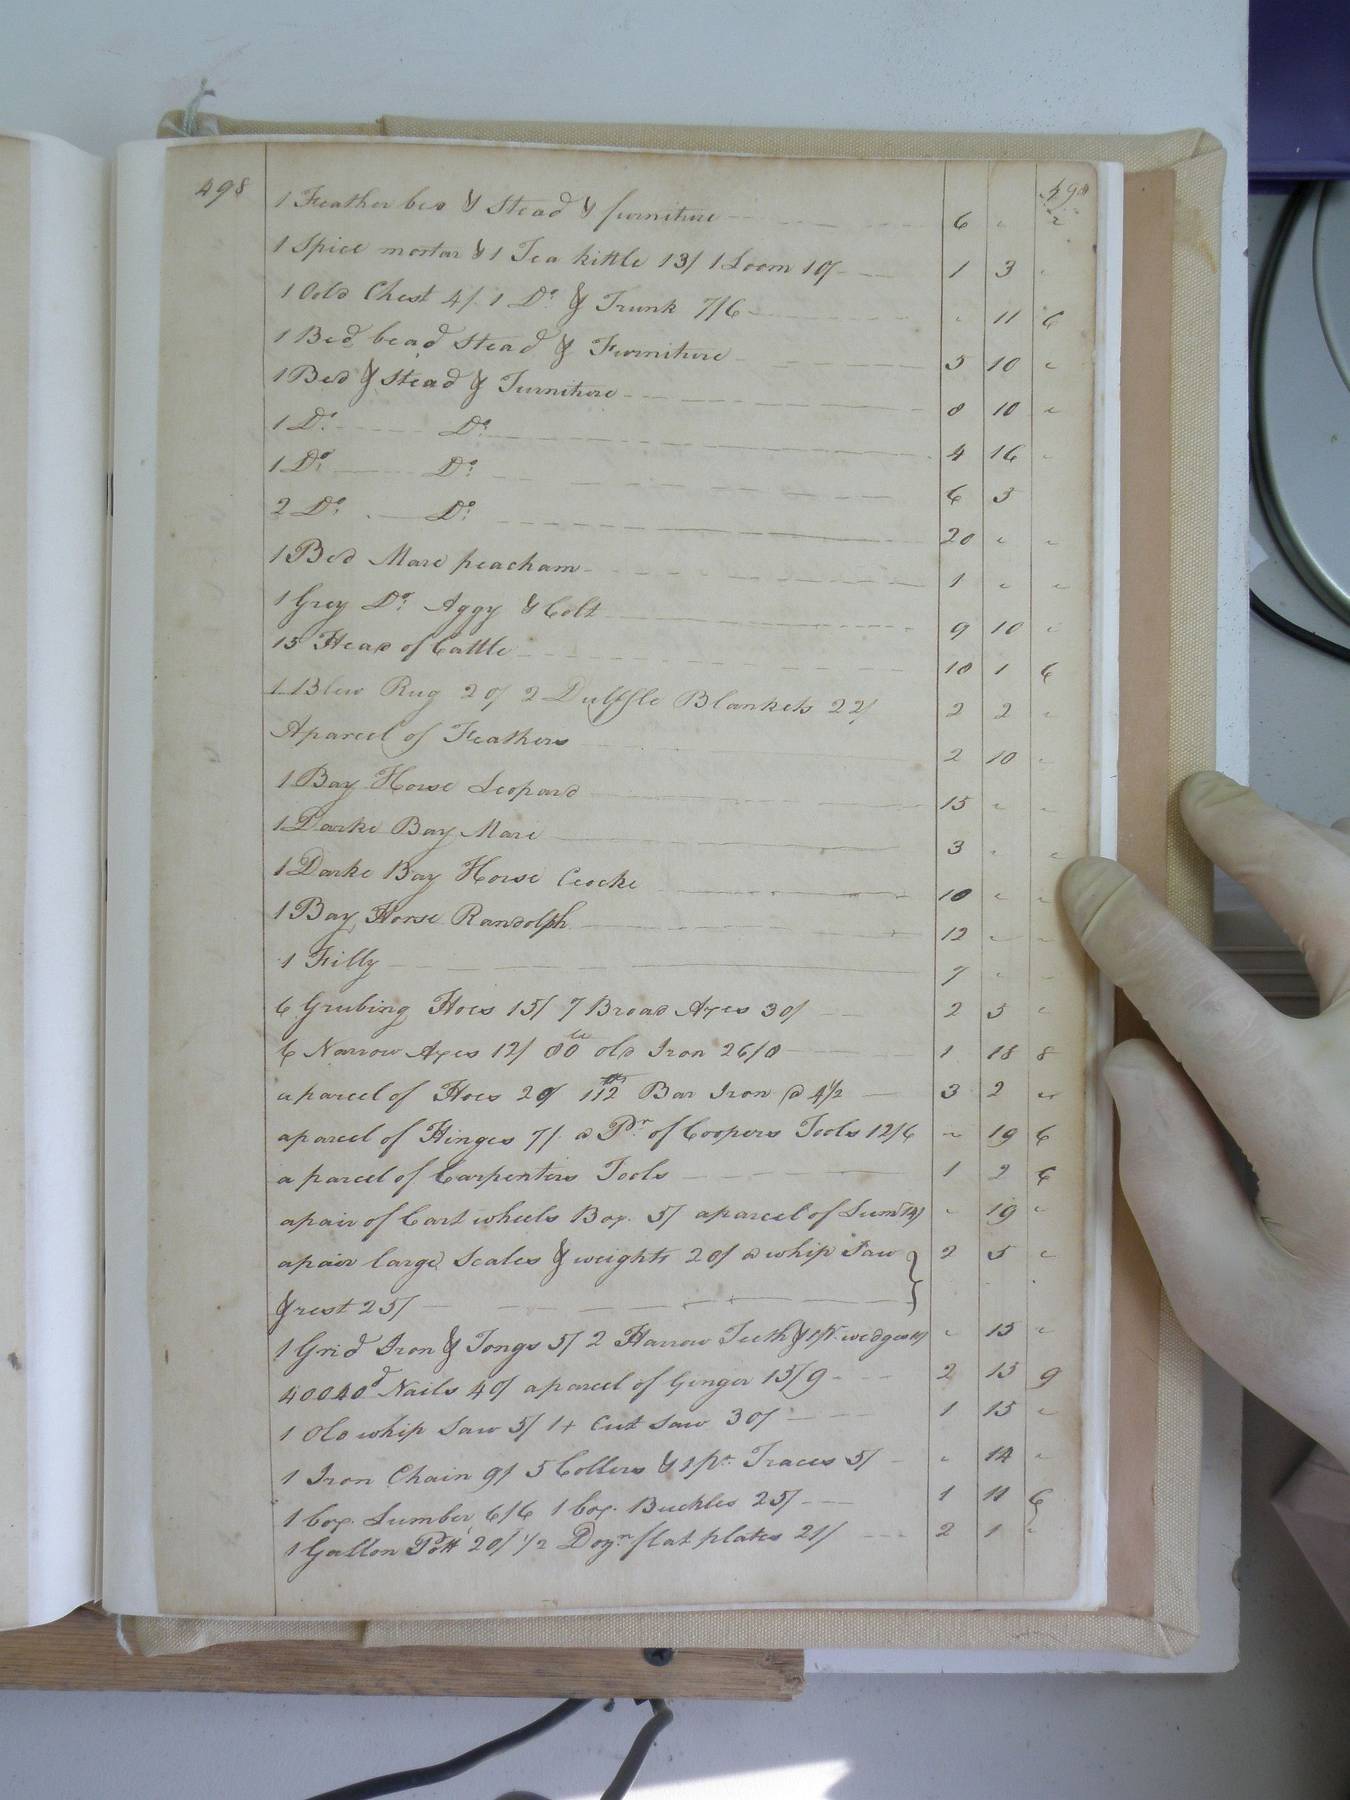 498 498
1 Feather bed & Stead & furniture 6 " "
1 Spice mortar & 1 Tea kittle 13/ 1 Loom 10/ 1 3 "
1 Oold Chest 4/. 1 Do. & Trunk 7/6 " 11 6
1 Bed bead Stead & Furniture 5 10 "
1 Bed & Stead & Furniture 8 10 "
1 Do. Do. 4 16 "
1 Do. Do. 6 5
2 Do. Do. 20 " "
1 Bed Mare peacham 1 " "
1 Grey Do. Aggy & Colt 9 10 "
15 Head of Cattle 10 1 6
1 Blew Rug 20/ 2 Dulffle Blankets 22/ 2 2 "
A parcel of Feathers 2 10 "
1 Bay Horse Leopard 15 " "
1 Darke Bay Mare 3 " "
1 Darke Bay Horse 10 " "
1 Bay Horse Randolph 12 " "
1 Filly 7 " "
6 Grubing Hoes 15/ 7 Broad Axes 30/ 2 5 "
6 Narrow Axes 12/ 80 old Iron 26/8 1 18 8
a parcel of Hoes 20/ 112 Bar Iron @ 4½ 3 2 "
a parcel of Hinges 7/. a Pr. of Coopers Tools 12/6 " 19 6
a parcel of Carpenters Tools 1 2 6
a pair of Cart wheels Box. 5/ a parcel of " 19 "
a pair large Scales & weights 20/ a whip Saw } 2 5 "
& rest 25/
1 Grid Iron & Tongs 5/ 2 Harrow Teeth & 1 pr. wedges " 15 "
400 40d Nails 40/ a parcel of Ginger 15/9 2 15 9
1 Old whip Saw 5/ 1 + Cut Saw 30/ 1 15 "
1 Iron Chain 9/ 5 Collers & 1 pr. Traces 5/ " 14 "
1 box. Lumber 6/6 1 box. Buckles 25/ 1 11 6
1 Gallon Pott 20/ 1/2 Dozn. flat plates 21/ 2 1 "